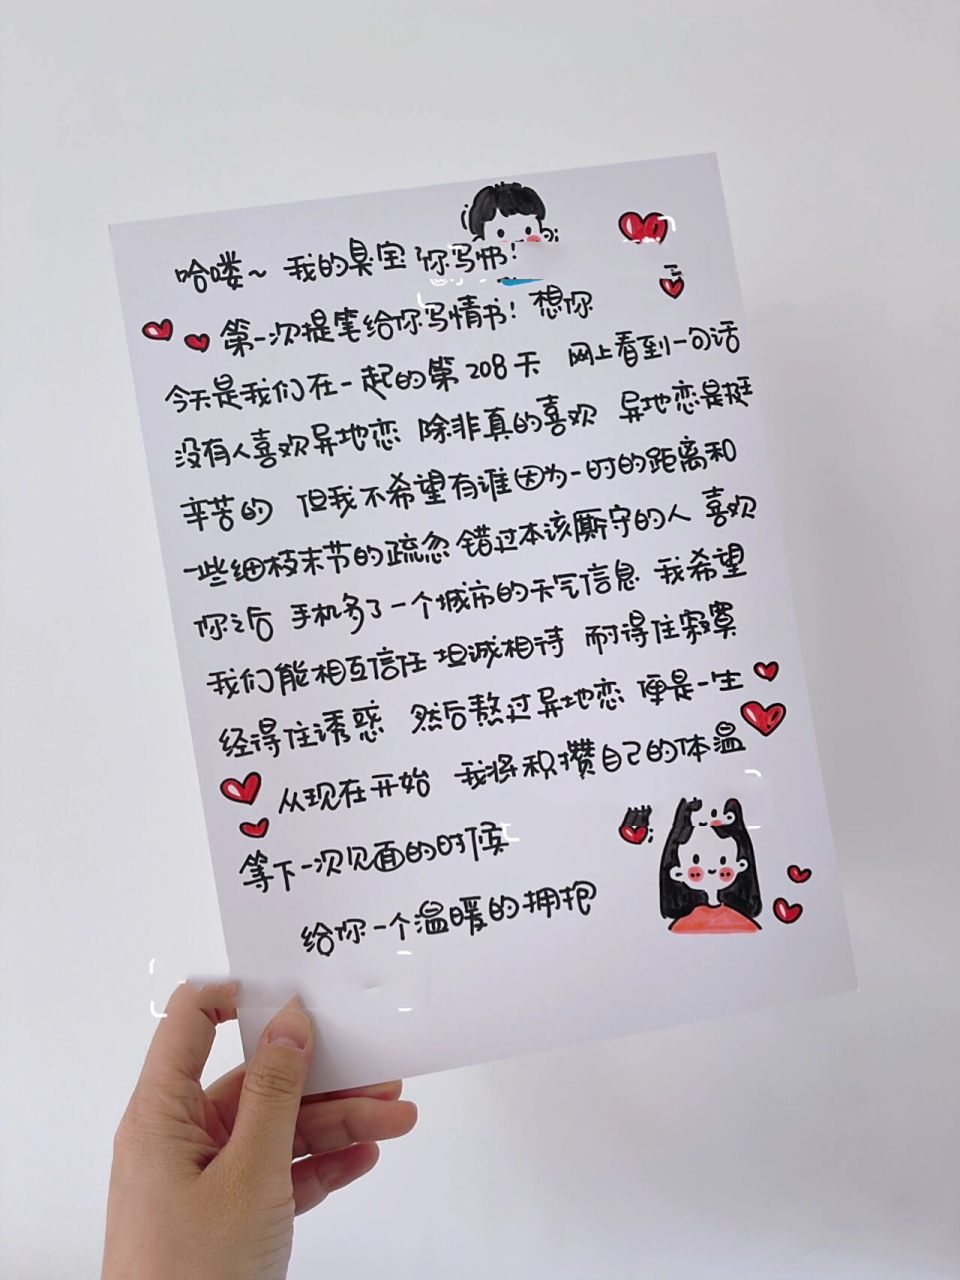 哈喽~ 我的臭宝 你写情书!
第一次提笔给你写情书! 想你
今天是我们在一起的第208天 网上看到一句话
没有人喜欢异地恋 除非真的喜欢 异地恋是挺
辛苦的 但我不希望有谁因为一时的距离和
一些细枝末节的疏忽 错过本该厮守的人 喜欢
你之后 手机多了一个城市的天气信息 我希望
我们能相互信任 坦诚相待 耐得住寂寞
经得住诱惑 然后熬过异地恋 便是一生
从现在开始 我将积攒自己的体温
等下一次见面的时候
给你一个温暖的拥抱